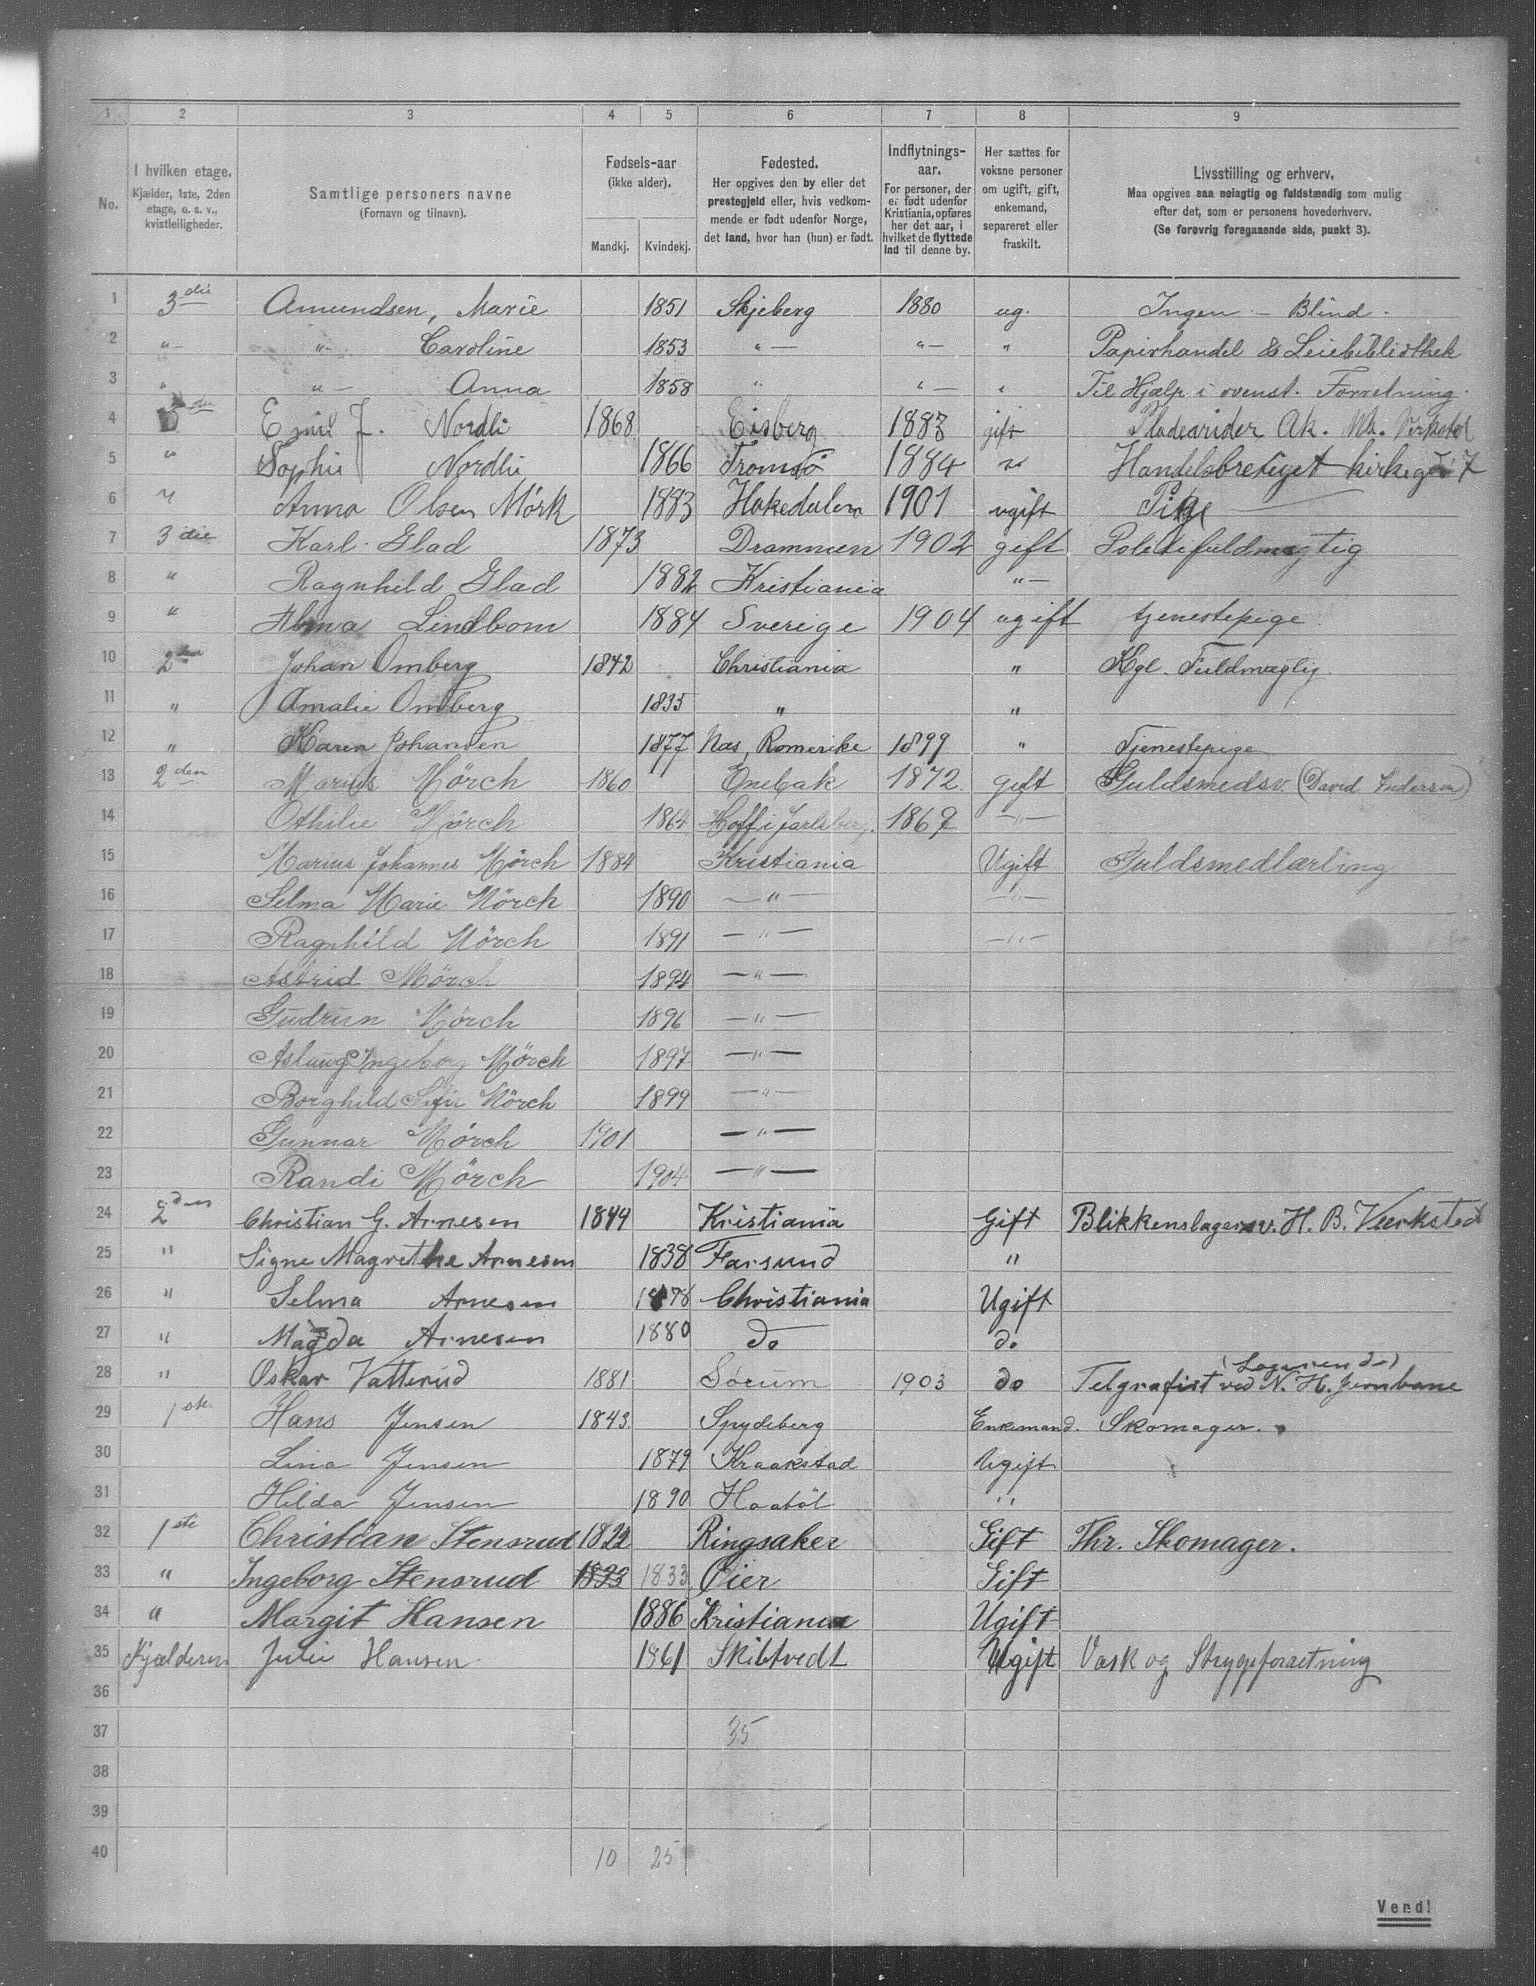 1 2 3 4 5 6 7 8 9
No.
I hvilken etage.
Kjælder, 1ste, 2den
etage, o. s. v.,
kvistleiligheder.
Samtlige personers navne
(Fornavn og tilnavn).
Fødsels-aar
(ikke alder).
Mandkj. Kvindekj.
Fødested.
Her opgives den by eller det
prestegjeld eller, hvis vedkom-
mende er født udenfor Norge,
det land, hvor han (hun) er født.
Indflytnings-
aar.
For personer, der
er født udenfor
Kristiania, opføres
her det aar, i
hvilket de flyttede
ind til denne by.
Her sættes for
voksne personer
om ugift, gift,
enkemand,
separeret eller
fraskilt.
Livsstilling og erhverv.
Maa opgives saa nøiagtig og fuldstændig som mulig
efter det, som er personens hovederhverv.
(Se forøvrig foregaaende side, punkt 3).
1 3die Amundsen, Marie 1851 Skjeberg 1880 ug. Ingen - Blind.
2 " " Caroline 1853 " " " Papirhandel & Leiebibliothek
3 " " Anna 1858 " " " Til Hjælp i ovenst. Forretning.
4 Emil J. Nordli 1868 Eisberg 1883 gift Ak. Mk. Verksted
5 " Sophie Nordli 1866 Tromsö 1884 " kirkeg 7
6 " Anna Olsen Mörk 1883 Hakedalen 1901 ugift Pige
7 3die Karl Glad 1873 Drammen 1902 gift Politifuldmægtig
8 " Ragnhild Glad 1882 Kristiania "
9 " Alma Lindbom 1884 Sverige 1904 ugift tjenestepige
10 2den Johan Omberg 1842 Christiania " Kgl. Fuldmægtig
11 " Amalie Omberg 1835 " "
12 " Karen Johansen 1877 Næs, Romerike 1899 " Tjenestepige
13 2den Marius Mörch 1860 Enebak 1872. gift Guldsmedsv. (David Andersen)
14 Othilie Mörch 1864 Hoff i Jarlsberg. 1867 "
15 Marius Johannes Mörch 1884 Kristiania Ugift Guldsmedlærling
16 Selma Marie Mörch 1890 " "
17 Ragnhild Mörch 1891 " "
18 Astrid Mörch 1894 "
19 Gudrun Mörch 1896 "
20 Aslaug Ingeborg Mörch 1897 "
21 Borghild Sofie Mörch 1899 "
22 Gunnar Mörch 1901 "
23 Randi Mörch 1904 "
24 2den Christian G. Arnesen 1844 Kristiania Gift Blikkenslagersv. H. B. Værksted
25 " Signe Magrethe Arnesen 1838 Farsund "
26 " Selma Arnesen 1878 Christiania Ugift
27 " Magda Arnesen 1880 do do
28 " Oskar Vatterud 1881 Sørum 1903 do Telgrafist ved N. H. Jernbane
(Logerende)
29 1ste Hans Jensen 1843. Spydeberg Enkemand. Skomager.
30 Lina Jensen 1879 Kraakstad Ugift
31 Hilda Jensen 1890 Haaböl "
32 1ste Christian Stensrud 1822 Ringsaker Gift Fhr. Skomager.
33 " Ingeborg Stensrud 1833 1833 Øier Gift
34 " Margit Hansen 1886 Kristiania Ugift
35 Kjælderen Julie Hansen 1861 Skibtvedt Ugift Vask og Strygeforretning
36
37 35
38
39
40 10 25
Vend!